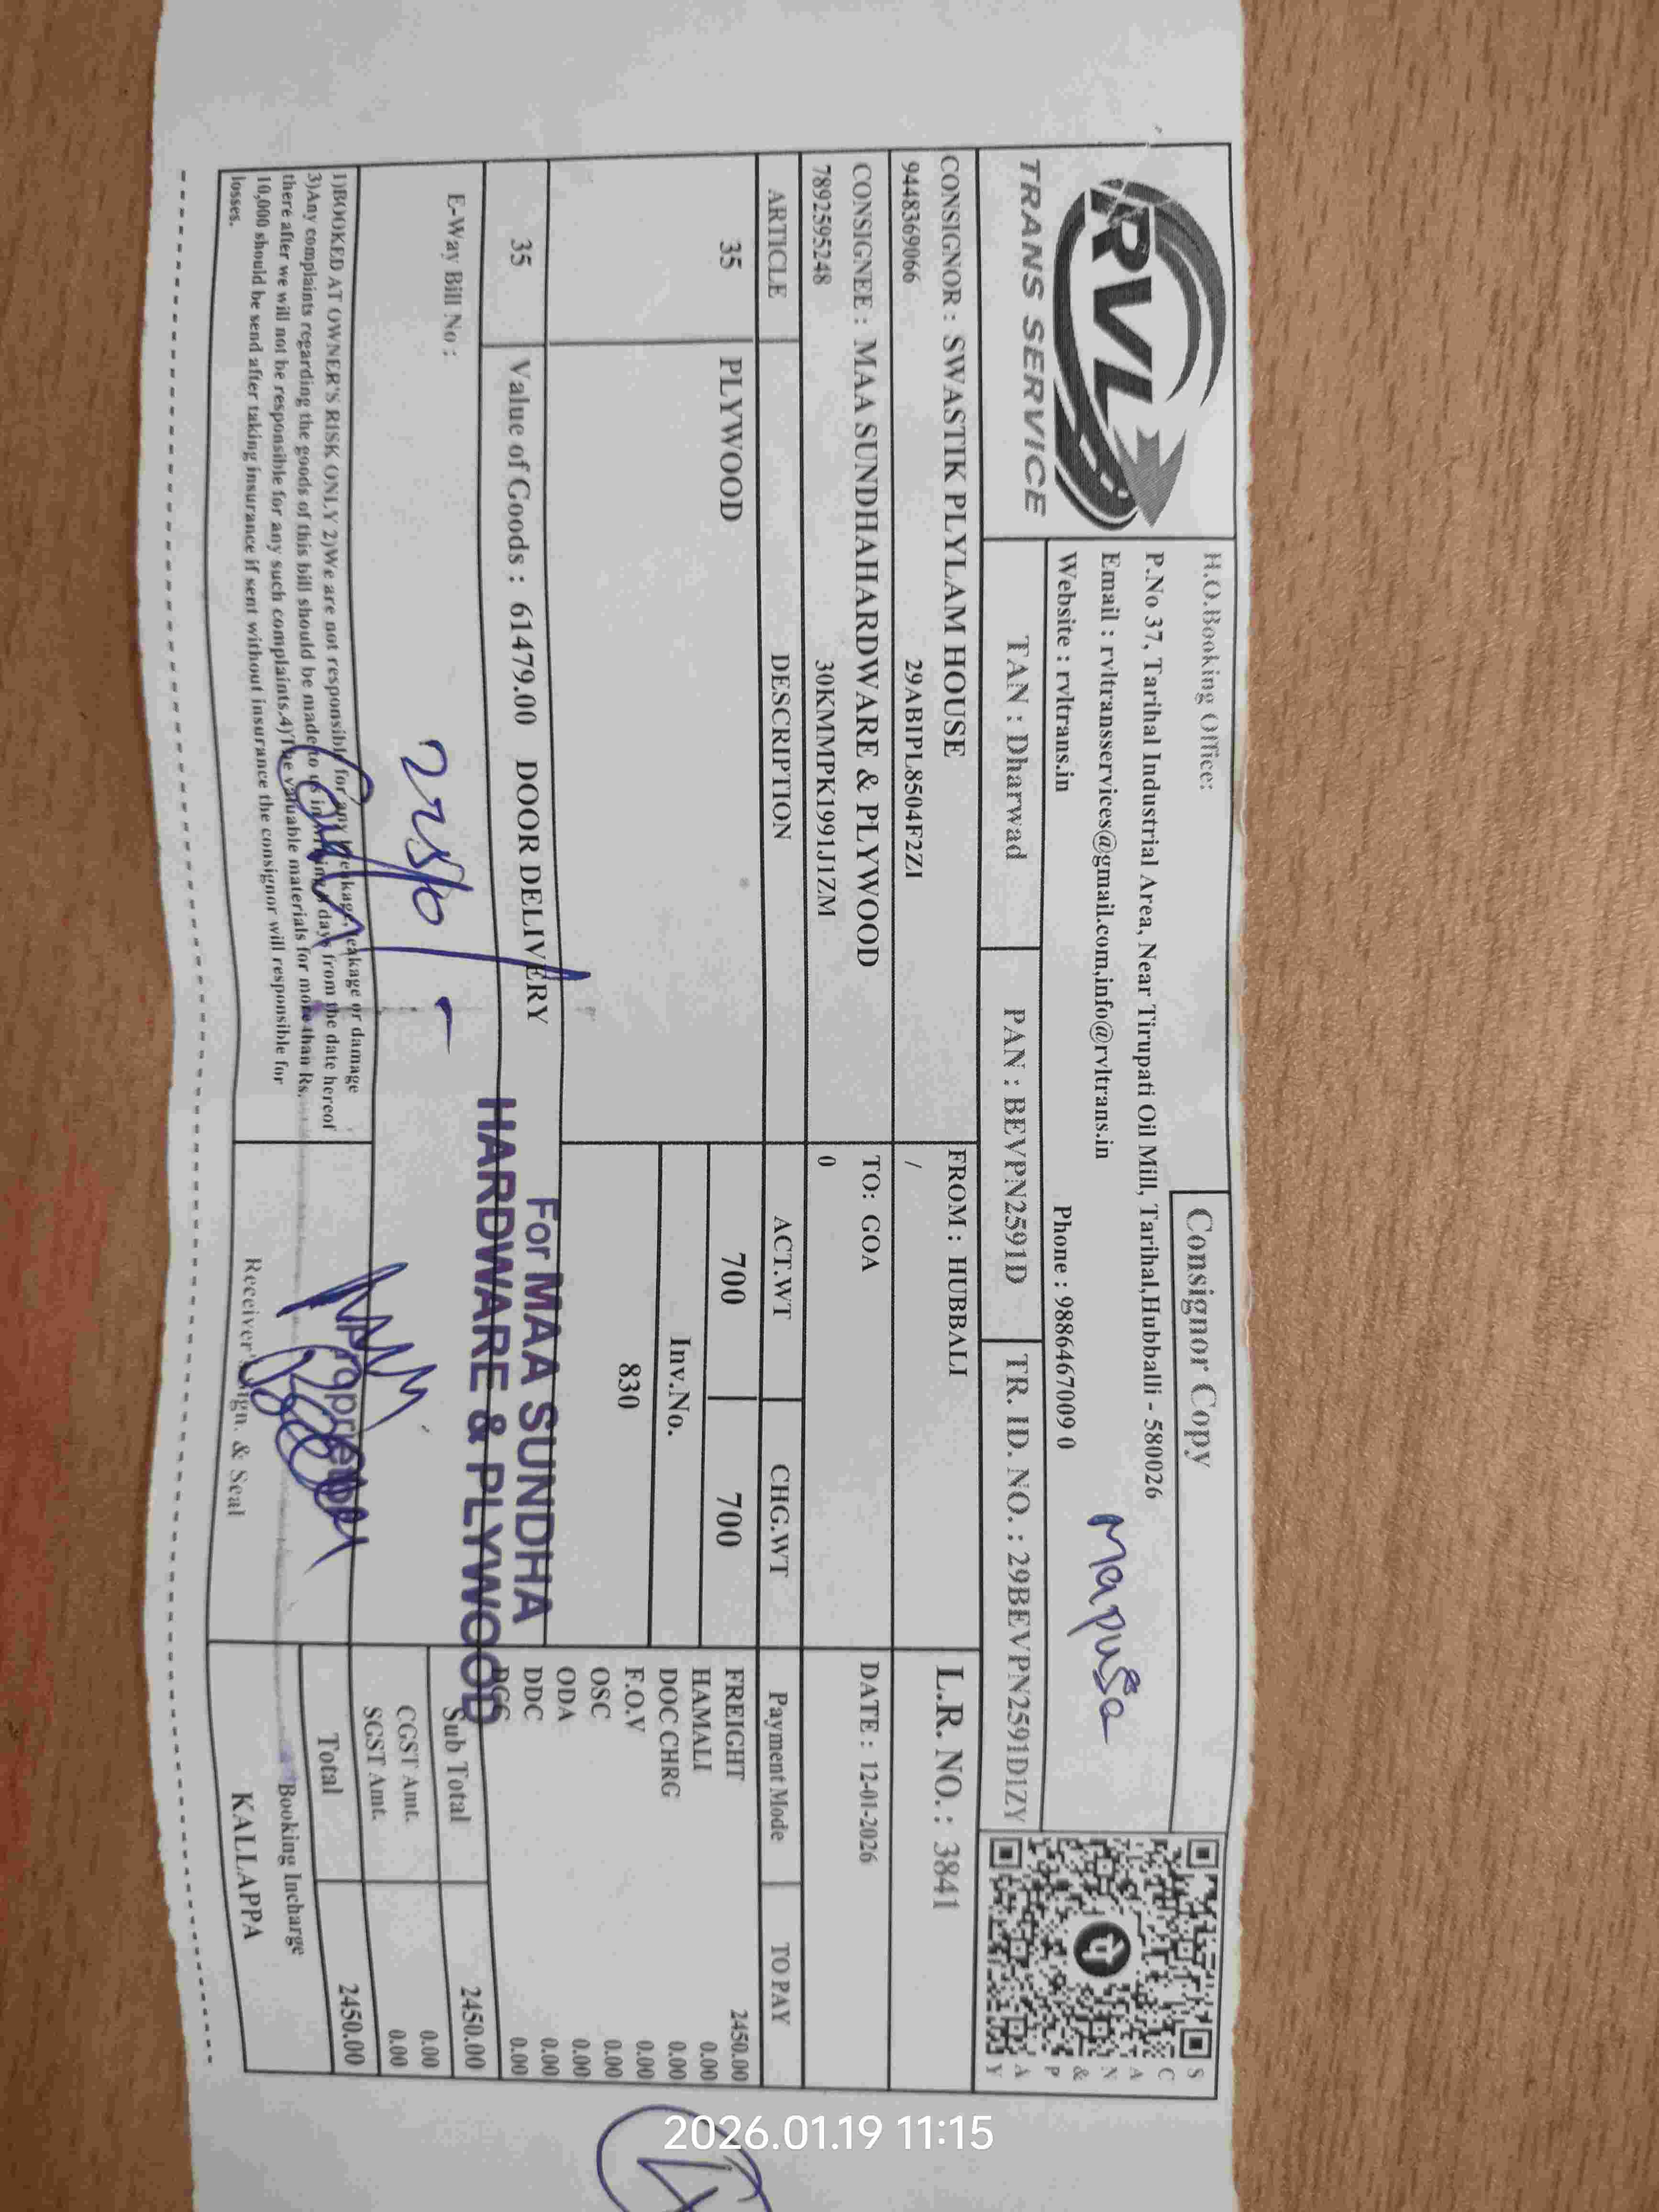 RVL
TRANS SERVICE
H.O.Booking Office:
Consignor Copy
P.No 37, Tarihal Industrial Area, Near Tirupati Oil Mill, Tarihal,Hubballi - 580026
Email : rvltransservices@gmail.com,info@rvltrans.in
Website : rvltrans.in Phone : 9886467009 0
Mapusa
SCAN & PAY
TAN : Dharwad PAN : BEVPN2591D TR. ID. NO. : 29BEVPN2591D1ZY
CONSIGNOR : SWASTIK PLYLAM HOUSE FROM : HUBBALI L.R. NO. : 3841
9448369066 29ABIPL8504F2ZI /
CONSIGNEE : MAA SUNDHAHARDWARE & PLYWOOD TO: GOA DATE : 12-01-2026
7892595248 30KMMPK1991J1ZM 0
ARTICLE DESCRIPTION ACT.WT CHG.WT Payment Mode TO PAY
35 PLYWOOD 700 700 FREIGHT 2450.00
HAMALI 0.00
Inv.No. DOC CHRG 0.00
830 F.O.V 0.00
OSC 0.00
ODA 0.00
35 Value of Goods : 61479.00 DOOR DELIVERY DDC 0.00
0.00
For MAA SUNDHA
HARDWARE & PLYWOOD
E-Way Bill No : Sub Total 2450.00
CGST Amt. 0.00
SGST Amt. 0.00
Total 2450.00
1)BOOKED AT OWNER'S RISK ONLY 2)We are not responsible for any breakage, leakage or damage
3)Any complaints regarding the goods of this bill should be made to us in days from the date hereof
there after we will not be responsible for any such complaints.4)The valuable materials for more than Rs.
10,000 should be send after taking insurance if sent without insurance the consignor will responsible for
losses.
Proprietor
Receiver's Sign. & Seal
Booking Incharge
KALLAPPA
2026.01.19 11:15